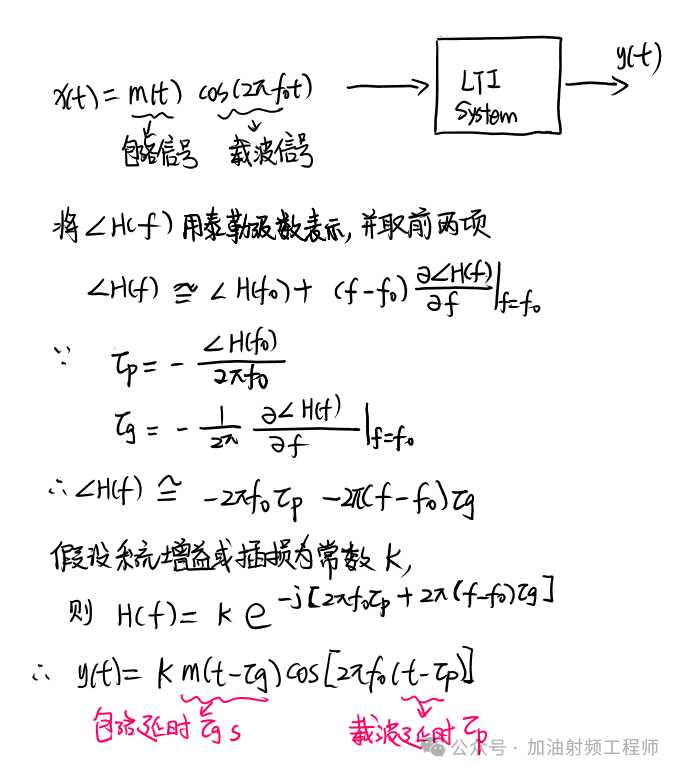 x(t) = m(t) cos(2πf₀t)
LTI
System
y(t)
包络信号 载波信号
将∠H(f)用泰勒级数表示,并取前两项
∠H(f) ≅ ∠H(f₀) + (f-f₀) ∂∠H(f)/∂f |f=f₀
∵ τp = - ∠H(f₀)/2πf₀
τg = - 1/2π ∂∠H(f)/∂f |f=f₀
∴ ∠H(f) ≅ -2πf₀τp -2π(f-f₀)τg
假设系统增益或插损为常数 K,
则 H(f) = K e^-j[2πf₀τp + 2π(f-f₀)τg]
∴ y(t) = K m(t-τg) cos[2πf₀(t-τp)]
包络延时 τg s 载波延时 τp
公众号 · 加油射频工程师